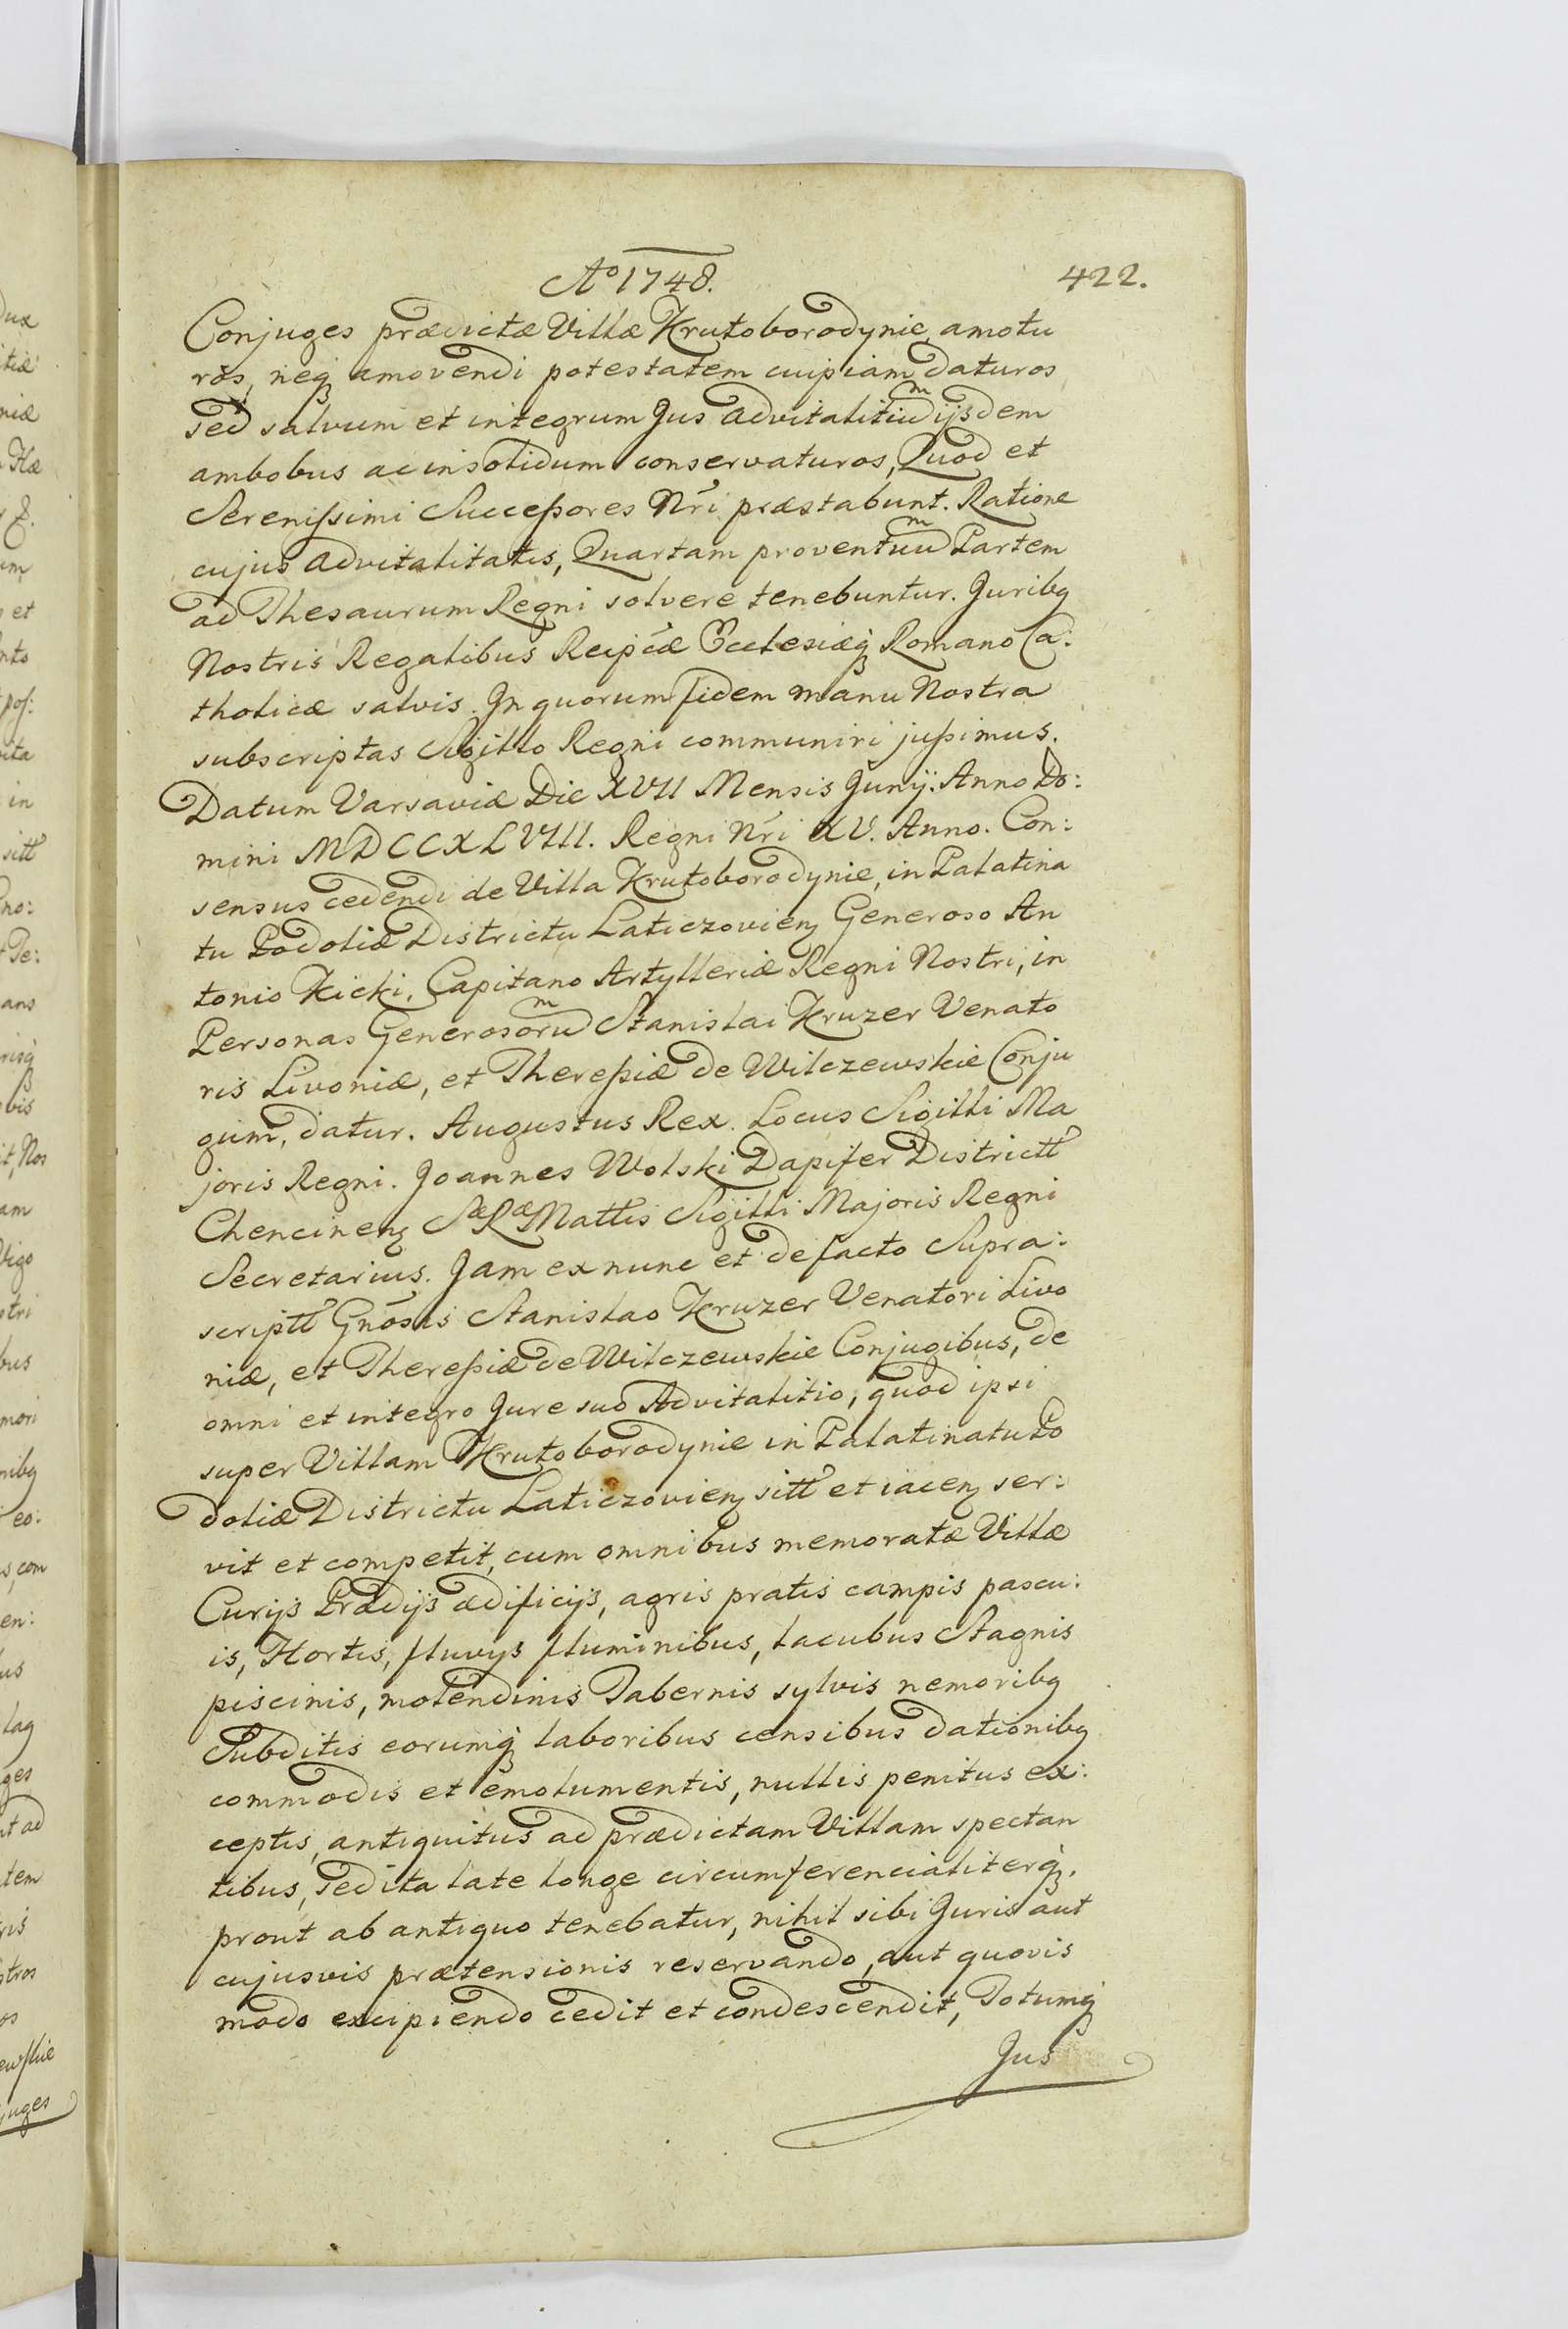 Aº 1748.
422.
Conjuges prædictæ Villæ Krutoborodynie, amotu
ros, neq amovendi potestatem cuipiam daturos
sed salvum et integrum Jus advitalitiūm ijsdem
ambobus ac in solidum conservaturos, Quod et
Serenissimi Successores Nri præstabunt. Ratione
cujus advitalitatis, Quartam proventuūm Partem
ad Thesaurum Regni solvere tenebuntur. Juribq
Nostris Regalibus Reipcæ Ecclesiæq Romano Ca:
tholicæ salvis. In quorum fidem manu Nostra
subscriptas Sigillo Regni communiri jussimus.
Datum Varsaviæ Die XVII Mensis Junij. Anno Do:
mini MDCCXLVIII. Regni Nri XV. Anno. Con:
sensus cedendi de Villa Krutoborodynie, in Palatina
tu Podoliæ Districtu Laticzovien Generoso An
tonio Kicki, Capitano Artylleriæ Regni Nostri, in
Personas Generosorūm Stanislai Kruzer Venato
ris Livoniæ, et Theressiæ de Wilczewskie Conju
gum, datur. Augustus Rex. Locus Sigilli Ma
joris Regni. Joannes Wolski Dapifer Districtt
Chencinen Sæ Ræ Mattis Sigilli Majoris Regni
Secretarius. Jam ex nunc et de facto Supra:
scriptt Gnosis Stanislao Kruzer Venatori Livo
niæ, et Theressiæ de Wilczewskie Conjugibus, de
omni et integro Jure suo Advitalitio, quod ipsi
super Villam Krutoborodynie in Palatinatu Po
doliæ Districtu Laticzovien sitt et iacen ser:
vit et competit, cum omnibus memoratæ Villæ
Curijs Prædijs ædificijs, agris pratis campis pascu:
is, Hortis, fluvys fluminibus, lacubus Stagnis
piscinis, molendinis Tabernis sylvis nemoribq
Subditis eorumq laboribus censibus dationibq
commodis et emolumentis, nullis penitus ex:
ceptis, antiquitus ad prædictam Villam spectan
tibus, sed ita late longe circumferencialiterq.
prout ab antiquo tenebatur, nihil sibi Juris aut
cujusvis prætensionis reservando, aut quovis
modo excipiendo cedit et condescendit, Totumq
Jus